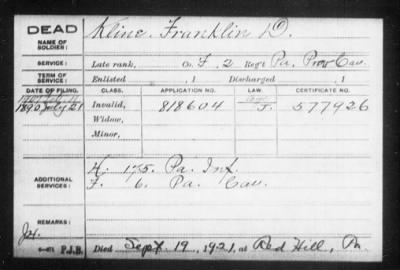 DEAD
NAME OF SOLDIER:
Kline. Franklin D.
SERVICE:
Late rank, Co. F, 2 Reg't Pa. Prov Cav.
TERM OF SERVICE:
Enlisted , 1 Discharged , 1
DATE OF FILING. CLASS. APPLICATION NO. LAW. CERTIFICATE NO.
1890 July 21 Invalid, 818604 J. 577926
Widow,
Minor,
ADDITIONAL SERVICES:
H. 175. Pa. Inf.
F. 6. Pa. Cav.
REMARKS:
P.J.B. Died Sept. 19, 1921, at Red Hill, Pa.